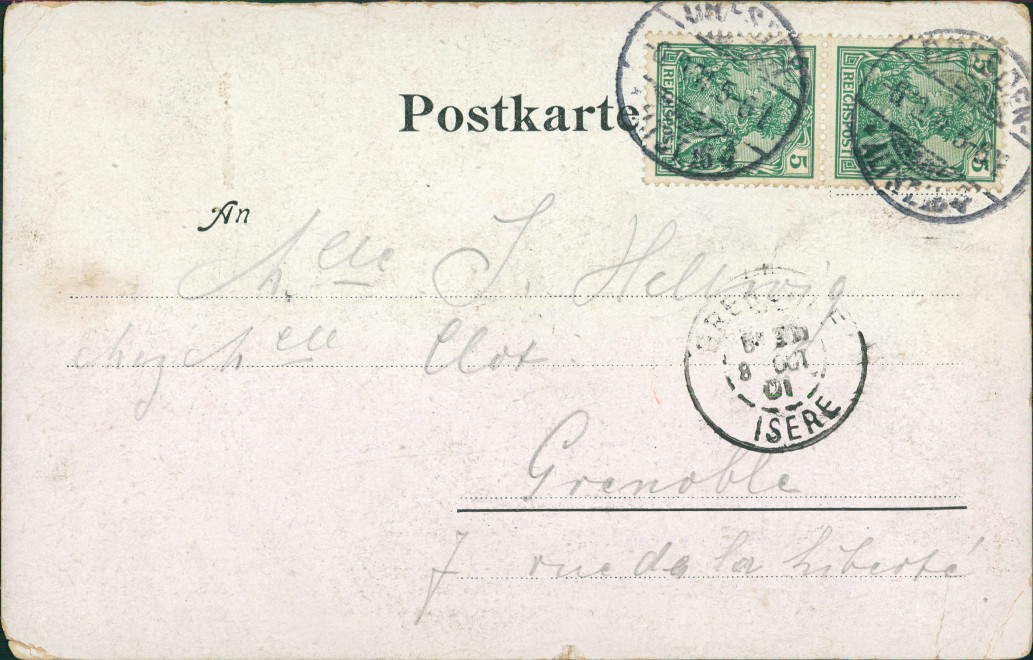 Postkarte
REICHSPOST 5
REICHSPOST 5
DRESDEN
An
Mlle S. Hellwig
chez Mlle Clot
GRENOBLE
8 OCT
01
ISERE
Grenoble
7 rue de la Liberté